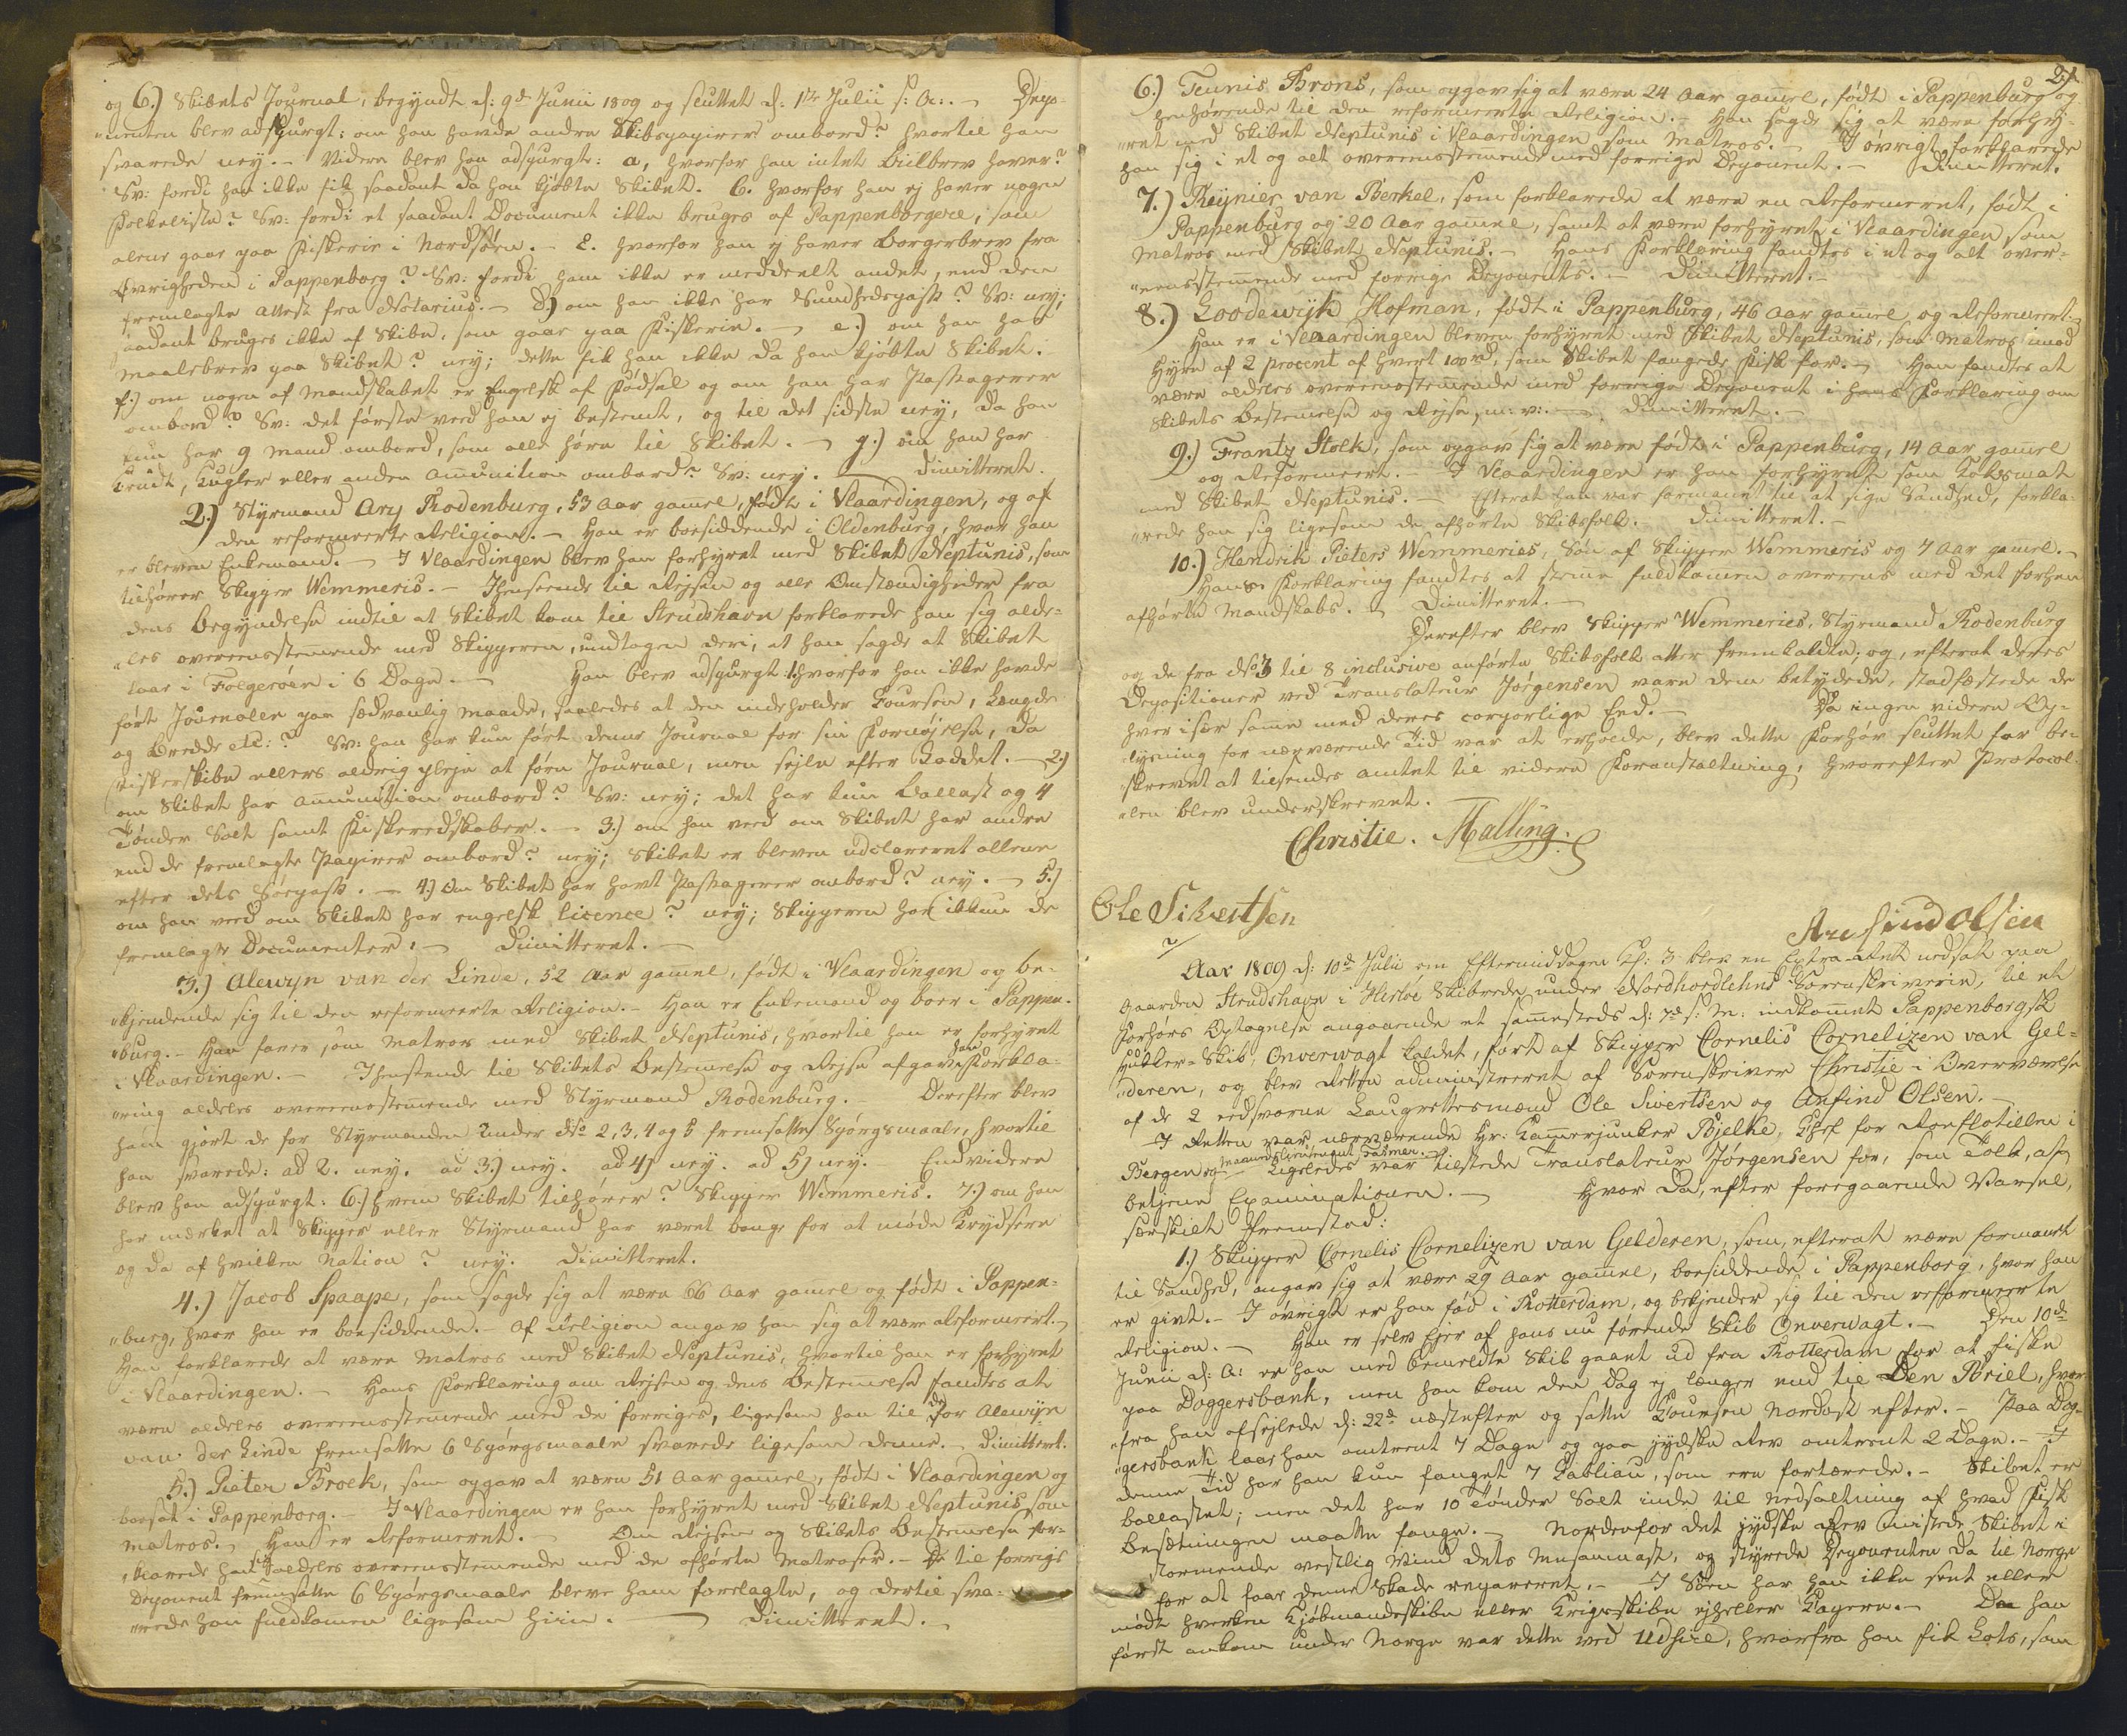 og 6.) Skibets Journal, begyndt d: 9de Junii 1809 og sluttet d: 1ste Julii s: A:. – Depo-
„nenten blev adspurgt: om han havde andre Skibspapirer ombord? hvortil han
svarede ney. – Videre blev han adspurgt: a, hvorfor han intet Biilbrev haver?
Sv: fordi han ikke fik saadant da han kjøbte Skibet. b. hvorfor han ej haver nogen
Folkeliste? Sv: fordi et saadant Document ikke bruges af Pappenborgere, som
alene gaar paa Fiskerie i Nordsøen. – c. hvorfor han ej haver Borgerbrev fra
Øvrigheden i Pappenborg? Sv: fordi ham ikke er meddeelt andet, end den
fremlagte Attest fra Notarius. – d.) om han ikke har Sundhedspass? Sv: ney;
saadant bruges ikke af Skibe, som gaar paa Fiskerie. – e.) om han har
Maalebrev paa Skibet? ney; dette fik han ikke da han kjøbte Skibet.
f.) om nogen af Mandskabet er Engelsk af Fødsel og om han har Passagerer
ombord? Sv: det første veed han ej bestemt, og til det sidste ney, da han
kun har 9 Mand ombord, som alle høre til Skibet. – g.) om han har
Krudt, Kugler eller anden Amunition ombord? Sv: ney. – Dimitteret.
2.) Styrmand Ary Rodenburg, 53 Aar gamel, født i Vlaardingen, og af
den reformeerte Religion. – Han er boesiddende i Oldenburg, hvor han
er bleven Enkemand. – I Vlaardingen blev han forhyret med Skibet Neptunis, som
tilhører Skipper Wemmeris. – Henseende til Rejsen og alle Omstændigheder fra
dens Begyndelse indtil at Skibet kom til Strudshavn forklarede han sig alde-
„les overeensstemende med Skipperen, undtagen deri, at han sagde at Skibet
laae i Folgerøen i 6 Dage. – Han blev adspurgt: 1. hvorfor han ikke havde
ført Journalen paa sædvanlig Maade, saaledes at den indeholder Coursen, Længde
og Bredde etc:? Sv: han har kun ført denne Journal for sin Fornøjelse, da
Fiskerskibe ellers aldrig pleje at føre Journal, men sejle efter Loddet. – 2.)
om Skibet har Amunition ombord? Sv: ney; det har kun Ballast og 4
Tønder Salt samt Fiskeredskaber. – 3.) om han veed om Skibet har andre
end de fremlagte Papirer ombord? ney; Skibet er bleven udclareret allene
efter dets Søepass. – 4.) Om Skibet har havt Passagerer ombord? ney. – 5.)
om han veed om Skibet har engelsk licence? ney; Skipperen har ikkun de
fremlagte Documenter. – Dimitteret. –
3.) Alewyn van der Linde, 52 Aar gamel, født i Vlaardingen og be-
„kjendende sig til den reformeerte Religion. – Han er Enkemand og boer i Pappen-
„burg. – Han farer som Matros med Skibet Neptunis, hvortil han er forhyret
i Vlaardingen. – Henseende til Skibets Bestemelse og Rejse afgav han Forkla-
„ring aldeles overeensstemende med Styrmand Rodenburg. – Derefter blev
ham gjort de for Styrmanden under No 2, 3, 4 og 5 fremsatte Spørgsmaale, hvortil
han svarede: ad 2. ney. ad 3.) ney. ad 4) ney. ad 5) ney. – Endvidere
blev han adspurgt: 6.) hvem Skibet tilhører? Skipper Wemmeris. 7.) om han
har mærket at Skipper eller Styrmand har været bange for at møde Krydsere
og da af hvilken Nation? ney. Dimitteret.
4.) Jacob Spaape, som sagde sig at være 66 Aar gamel og født i Pappen-
„burg, hvor han er boesiddende. – Af Religion angav han sig at være Reformeert. –
Han forklarede at være Matros med Skibet Neptunis, hvortil han er forhyret
i Vlaardingen. – Hans Forklaring om Rejsen og dens Bestemelse fandtes at
være aldeles overeensstemende med de forriges, ligesom han til de for Alewijn
van der Linde fremsatte 6 Spørgsmaale svarede ligesom denne. – Dimitteret.
5.) Pieter Broek, som opgav at være 51 Aar gamel, født i Vlaardingen og
boesat i Pappenborg. – I Vlaardingen er han forhyret med Skibet Neptunis som
Matros. – Han er Reformeret. – Om Rejsen og Skibets Bestemelse for-
„klarede han sig aldeles overeensstemende med de afhørte Matroser. – De til forrige
Deponent fremsatte 6 Spørgsmaale bleve ham forelagte, og dertil sva-
„rede han fuldkomen ligesom hiin. – Dimitteret. –
21
6.) Teunis Brons, som opgav sig at være 24 Aar gamel, født i Pappenburg og
henhørende til den reformeerte Religion. – Han sagde sig at være forhy-
„ret med Skibet Neptunis i Vlaardingen som Matros. – I øvrigt forklarede
han sig i et og alt overeensstemende med forrige Deponent. – Dimitteret.
7.) Reynier van Berkel, som forklarede at være en Reformeret, født i
Pappenburg og 20 Aar gamel, samt at være forhyret i Vlaardingen som
Matros med Skibet Neptunis. – Hans Forklaring fandtes i et og alt over-
„eensstemende med forrige Deponents. – Dimitteret. –
8.) Loodewijk Hofman, født i Pappenburg, 46 Aar gamel og Reformeert. –
Han er i Vlaardingen bleven forhyret med Skibet Neptunis, som Matros imod
Hyre af 2 procent af hvert 100rd, som Skibet fangede Fisk for. – Han fandtes at
være aldeles overeensstemende med forrige Deponent i hans Forklaring om
Skibets Bestemelse og Rejse, m: v:. – Dimitteret. –
9.) Frantz Stolk, som opgav sig at være født i Pappenburg, 14 Aar gamel
og Reformeert. – I Vlaardingen er han forhyret som Koksmat
med Skibet Neptunis. – Efterat han var formanet til at sige Sandhed, forkla-
„rede han sig ligesom de afhørte Skibsfolk. – Dimitteret. –
10.) Hendrik Pieters Wemmeries, Søn af Skipper Wemmeris og 7 Aar gamel. –
Hans Forklaring fandtes at steme fuldkomen overeens med det forhen
afhørte Mandskabs. – Dimitteret. –
Derefter blev Skipper Wemmeries, Styrmand Rodenburg
og de fra No 3 til 8 inclusive anførte Skibsfolk atter fremkaldte; og, efterat deres
Depositioner ved Translateur Jørgensen vare dem betydede, stadfæstede de
hver især same med deres corporlige Eed. – Da ingen videre Op-
„lysning for nærværende Tid var at erholde, blev dette Forhør sluttet for be-
„skrevet at tilsendes Amtet til videre Foranstaltning, hvorefter Protocol-
„len blev underskrevet.
Christie. Malling.
Ole Sivertsen
Arnfind Olsen
Aar 1809 d: 10de Julii om Eftermiddagen Kl: 3 blev en Extra-Ret nedsat paa
Gaarden Strudshavn i Herløe Skibrede under Nordhordlehns Sorenskriverie, til et
Forhørs Optagelse angaaende et samesteds d: 7de s: M: indkomet Pappenborgsk
Hukker-Skib, Onverwagt kaldet, ført af Skipper Cornelis Cornelizen van Gel-
„deren, og blev Retten administreret af Sorenskriver Christie i Overværelse
af de 2 eedsvorne Laugrettesmænd Ole Sivertsen og Anfind Olsen. –
I Retten var nærværende Hr: Kammerjunker Bjelke, Chef for Roeflotillen i
Bergen og Maanedslieutenant Fasmer. – Ligeledes var tilstede Translateur Jørgensen for, som Tolk, at
betjene Examinationen. – Hvor da, efter foregaaende Varsel,
særskilt fremstod:
1.) Skipper Cornelis Cornelizen van Gelderen, som, efterat være formanet
til Sandhed, angav sig at være 29 Aar gamel, boesiddende i Pappenborg, hvor han
er givt. – I øvrigt er han fød i Rotterdam, og bekjender sig til den reformeerte
Religion. – Han er selv Ejer af hans nu førende Skib Onverwagt. – Den 10de
Junii d: A: er han med bemeldte Skib gaaet ud fra Rotterdam for at fiske
paa Doggersbank, men han kom den Dag ej længer end til Den Briel, hvor-
„fra han afsejlede d: 22de næstefter og satte Coursen Nordost efter. – Paa Dog-
„gersbank laae han omtrent 7 Dage og paa jydske Rev omtrent 2 Dage. – I
denne Tid har han kun fanget 7 Cabliau, som ere fortærede. – Skibet er
ballastet; men det har 10 Tønder Salt inde til Nedsaltning af hvad Fisk
Besætningen maatte fange. – Nordenfor det jydske Rev mistede Skibet i
stormende vestlig Vind dets Mesanmast, og styrede Deponenten da til Norge
for at faae denne Skade repareret. – I Søen har han ikke seet eller
mødt hverken Kjøbmandsskibe eller Krigsskibe ejheller Kapere. – Da han
først ankom under Norge var dette ved Udsire, hvorfra han fik Lots, som